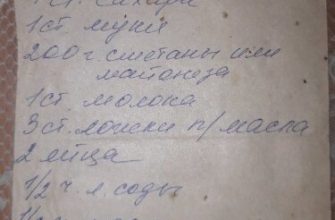 1 ст. сахара
1 ст. муки
200 г. сметаны или
майонеза
1 ст молока
3 ст. ложки п/масла
2 яйца
1/2 ч. л. соды